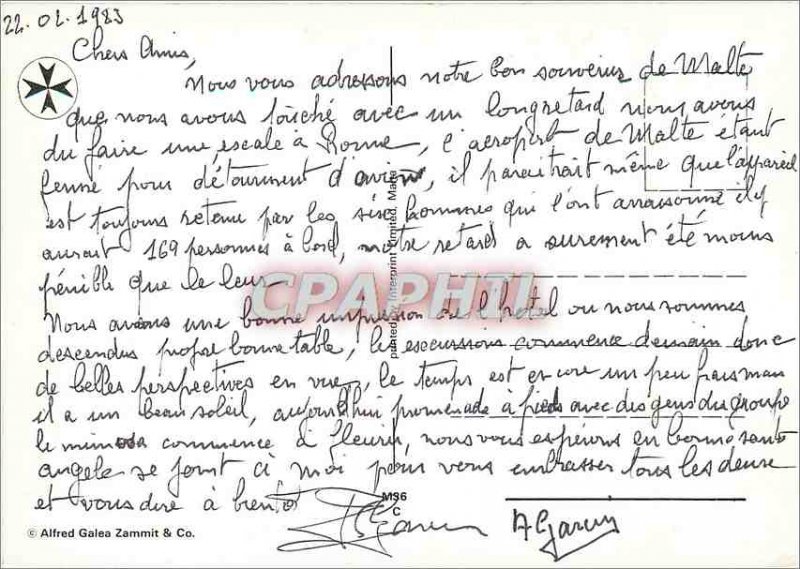 22.02.1983
Chers Amis,
Nous vous adressons notre bon souvenir de Malte
que nous avons touché avec un long retard nous avons
du faire une escale à Rome, l'aeroport de Malte étant
fermé pour détournement d'avion, il paraitrait même que l'appareil
est toujours retenu par les six hommes qui l'ont arraisonné il y
aurait 169 personnes à bord, notre retard a surement été moins
pénible que le leur
CPAPHIL
Nous avons une bonne impression de l'hotel ou nous sommes
descendus propre bonne table, les excursions commence demain donc
de belles perspectives en vue, le temps est encore un peu frais mais
il a un beau soleil, aujourd'hui promenade à pieds avec des gens du groupe
le mimosa commence à fleurir, nous vous espérons en bonne santé
angele se joint à moi pour vous embrasser tous les deux
et vous dire à bientôt
AGarcin
printed by Interprint Limited, Malta
M36
C
© Alfred Galea Zammit & Co.